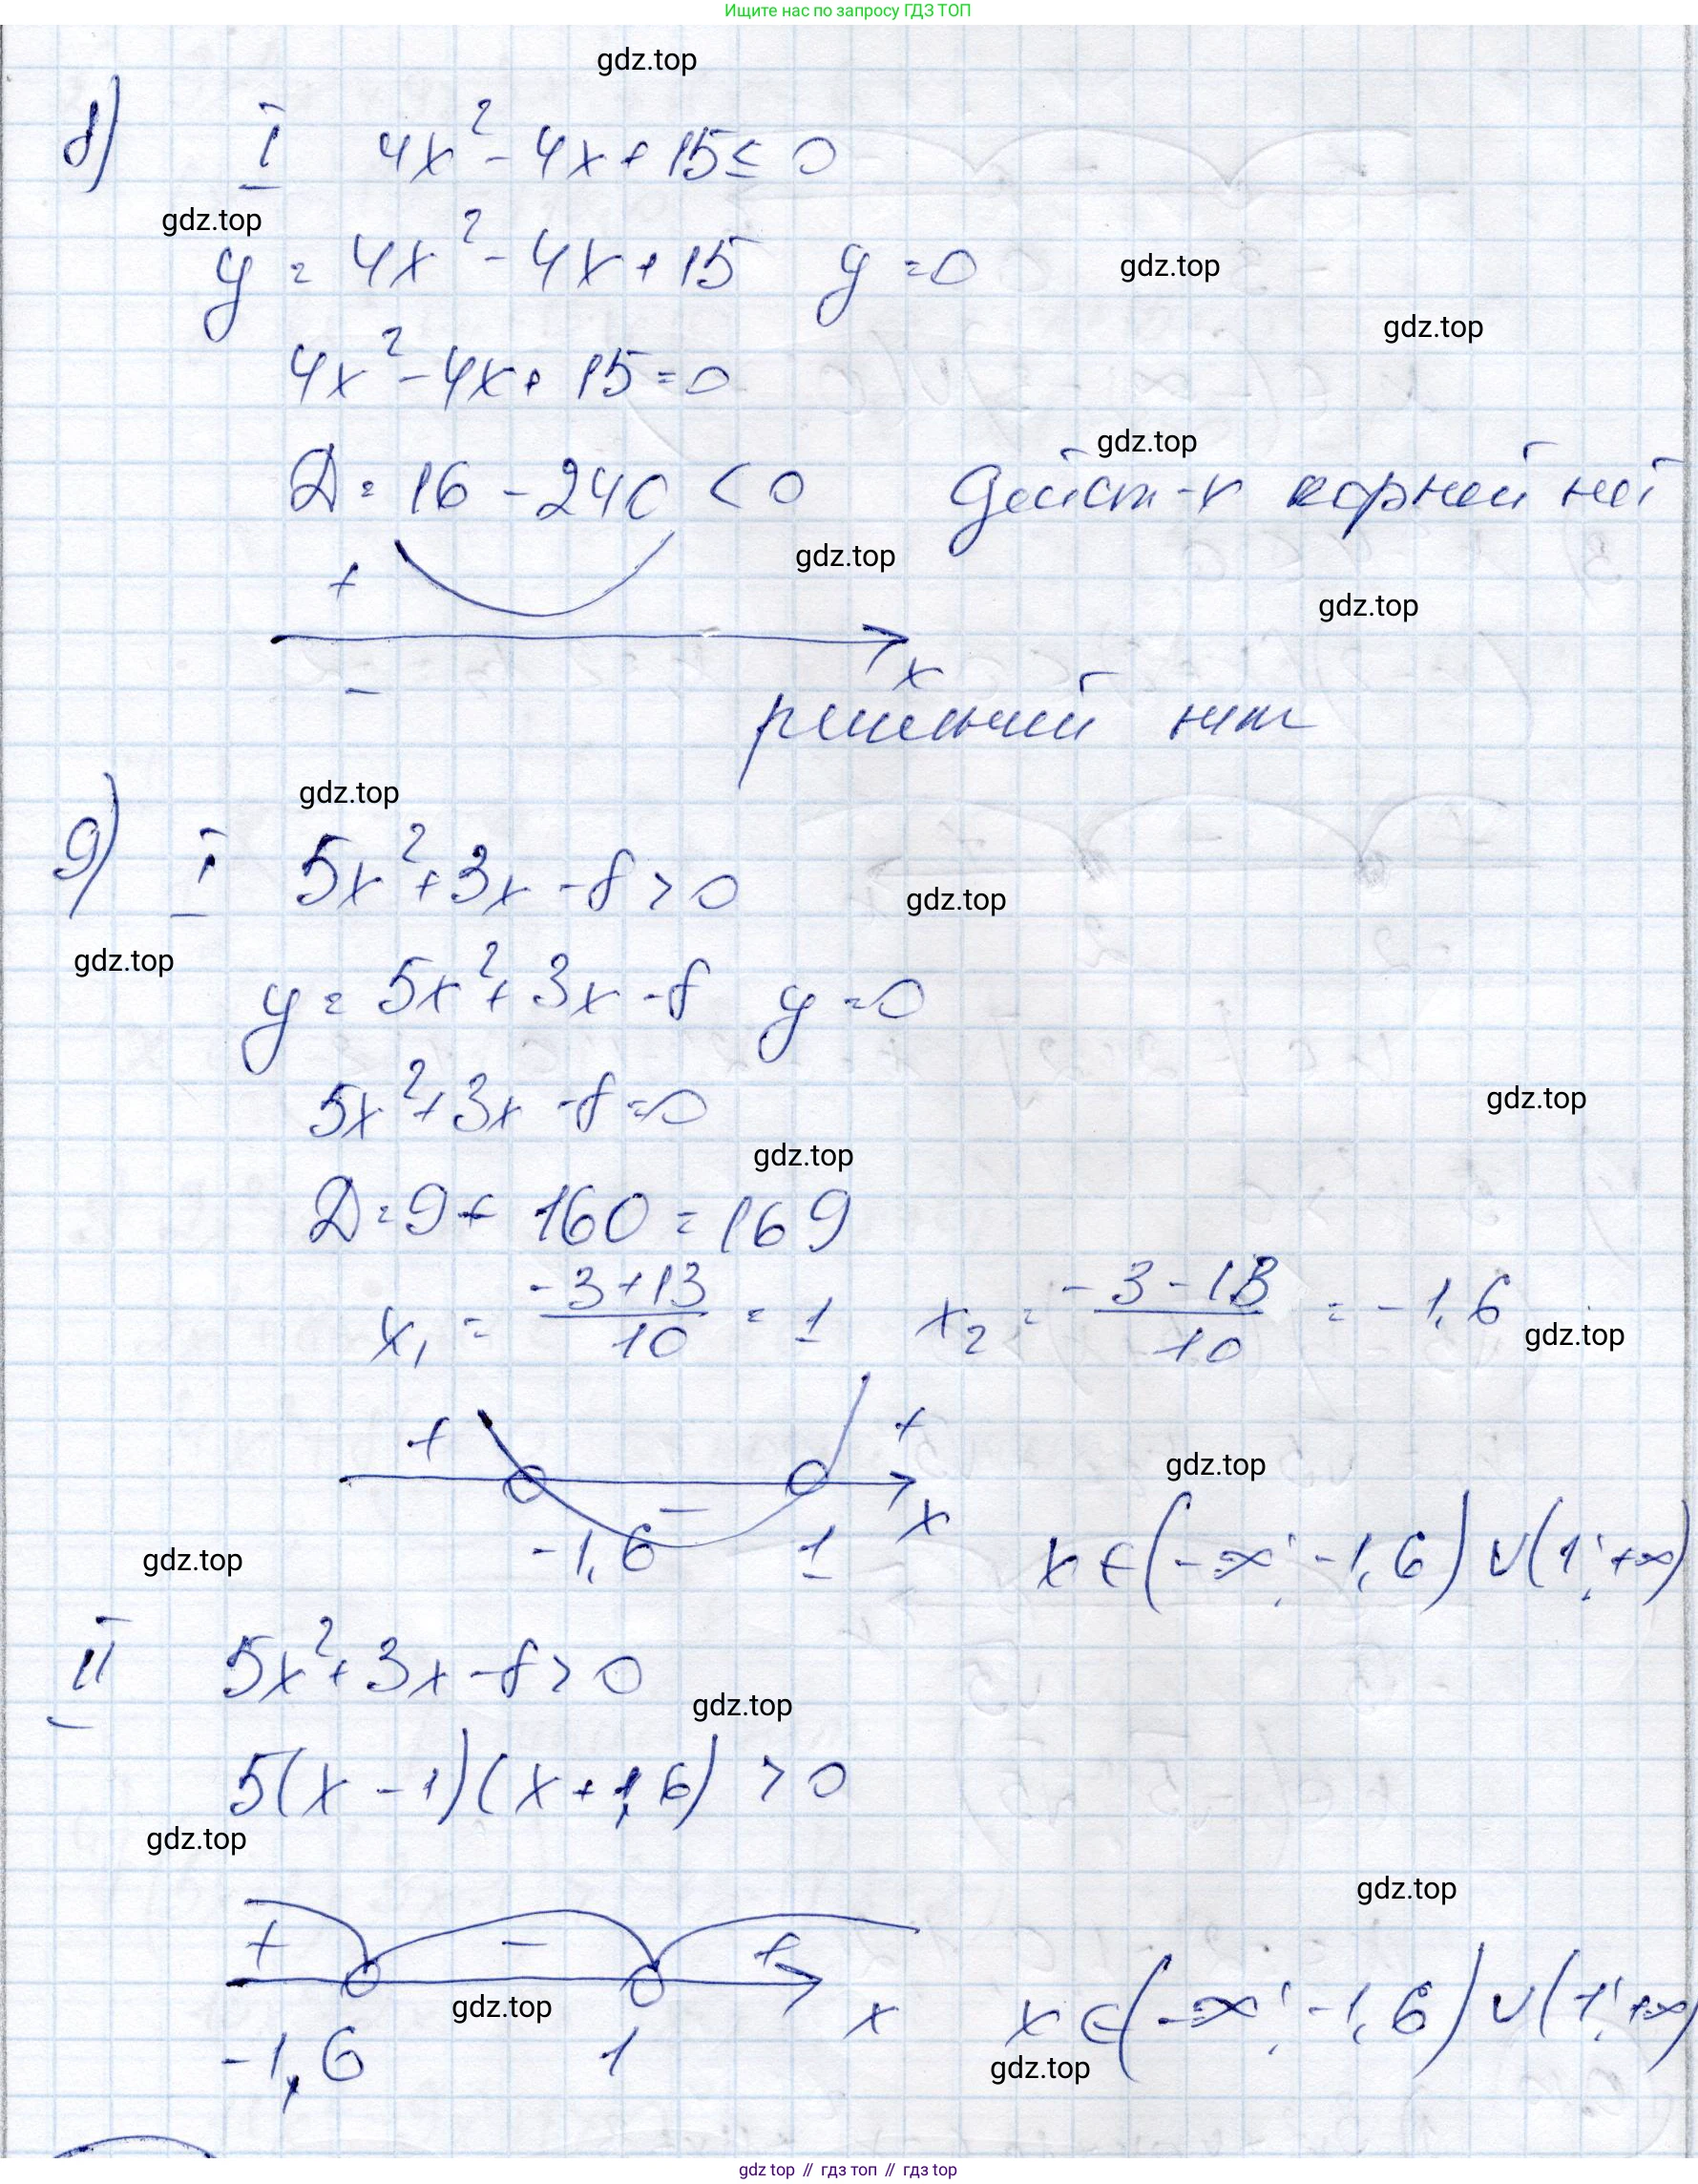 Ищите нас по запросу ГДЗ ТОП
gdz.top
8) I 4x² - 4x + 15 ≤ 0
gdz.top
y = 4x² - 4x + 15 y = 0
gdz.top
gdz.top
4x² - 4x + 15 = 0
gdz.top
Д = 16 - 240 < 0 дейст-х корней нет
gdz.top
+
gdz.top
x
-
решений нет
gdz.top
9) I 5x² + 3x - 8 > 0
gdz.top
gdz.top
y = 5x² + 3x - 8 y = 0
5x² + 3x - 8 = 0
gdz.top
gdz.top
Д = 9 + 160 = 169
x₁ = (-3+13)/10 = 1 x₂ = (-3-13)/10 = -1,6
gdz.top
+ - +
gdz.top
-1,6 1 x
x ∈ (-∞; -1,6) ∪ (1; +∞)
gdz.top
II 5x² + 3x - 8 > 0
gdz.top
5(x - 1)(x + 1,6) > 0
gdz.top
gdz.top
+ - +
gdz.top
-1,6 1 x
x ∈ (-∞; -1,6) ∪ (1; +∞)
gdz.top
gdz top // гдз топ // гдз top